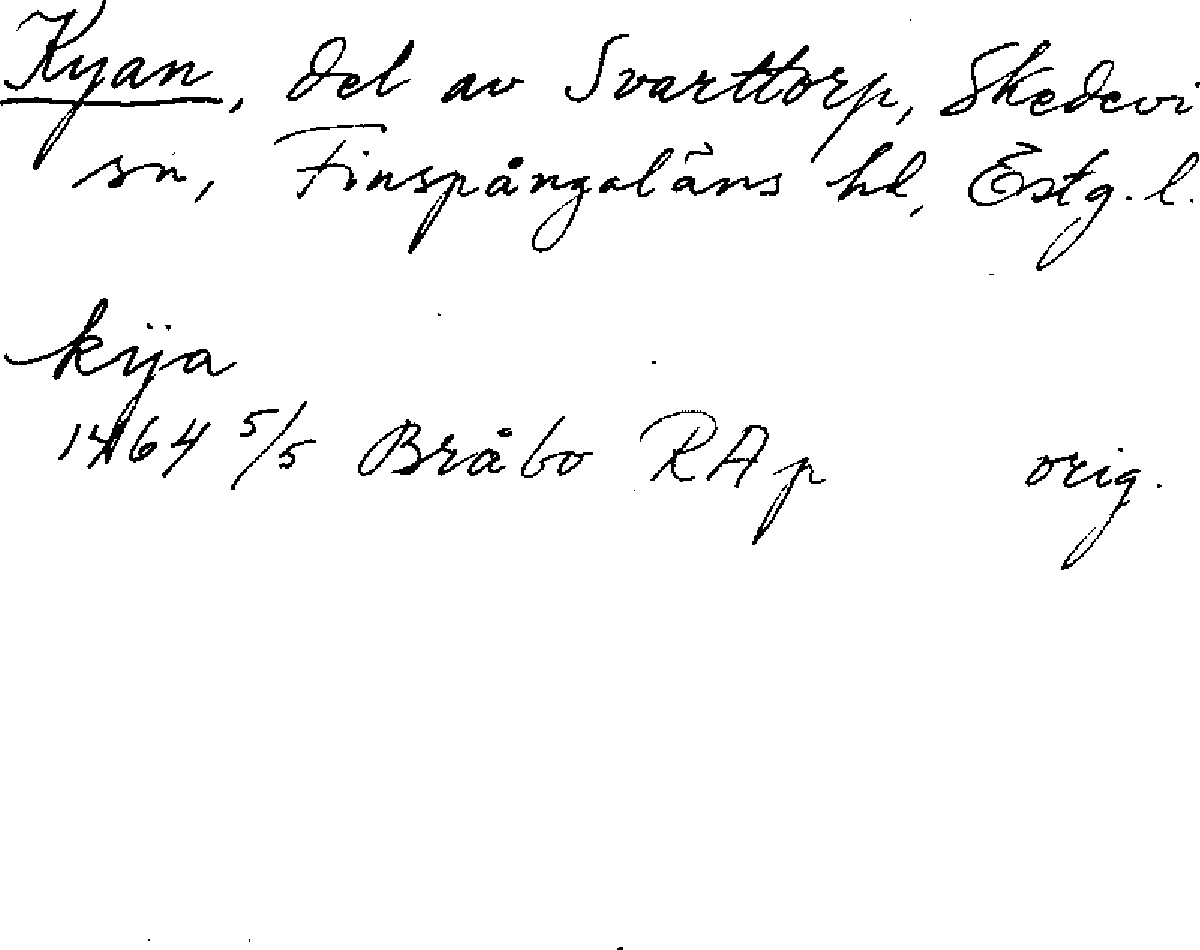 Kyan, del av Svarttorp, Skedevi
sn, Finspångaläns hd, Östg. l.
kÿa
1464 5/5 Bråbo RAp orig.